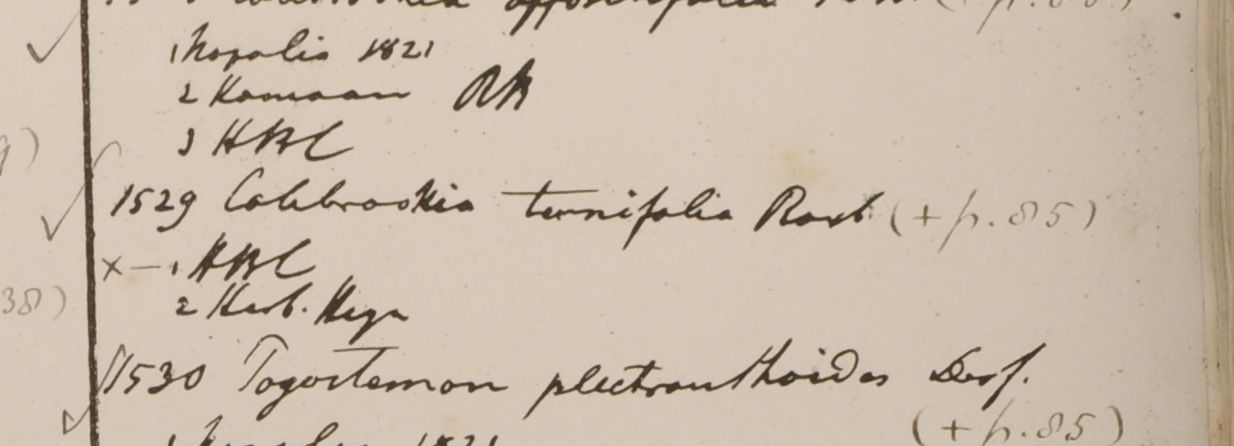 oppositifolia (+ p. 85)
1 Napalia 1821
2 Kamaon RB
3 HBC
1529 Colebrookia ternifolia Roxb (+ p. 85)
x – 1 HBC
2 Herb. Heyn
38)
1530 Pogostemon plectranthoides Desf.
(+ p. 85)
1 1821